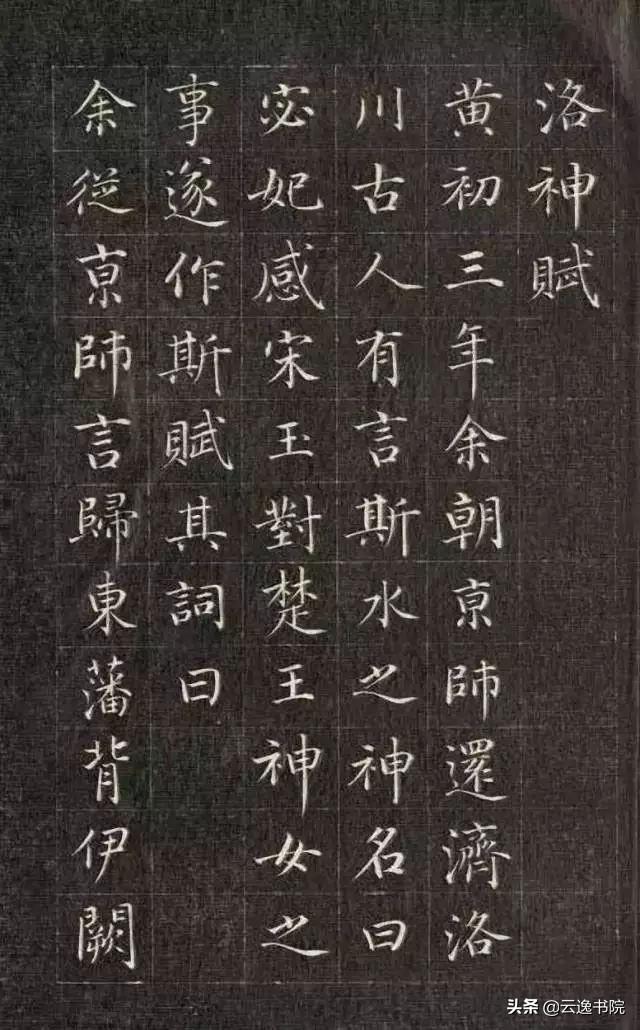 洛神賦
黄初三年余朝京師還濟洛
川古人有言斯水之神名曰
宓妃感宋玉對楚王神女之
事遂作斯賦其詞曰
余従京師言歸東藩背伊闕
头条 @云逸书院